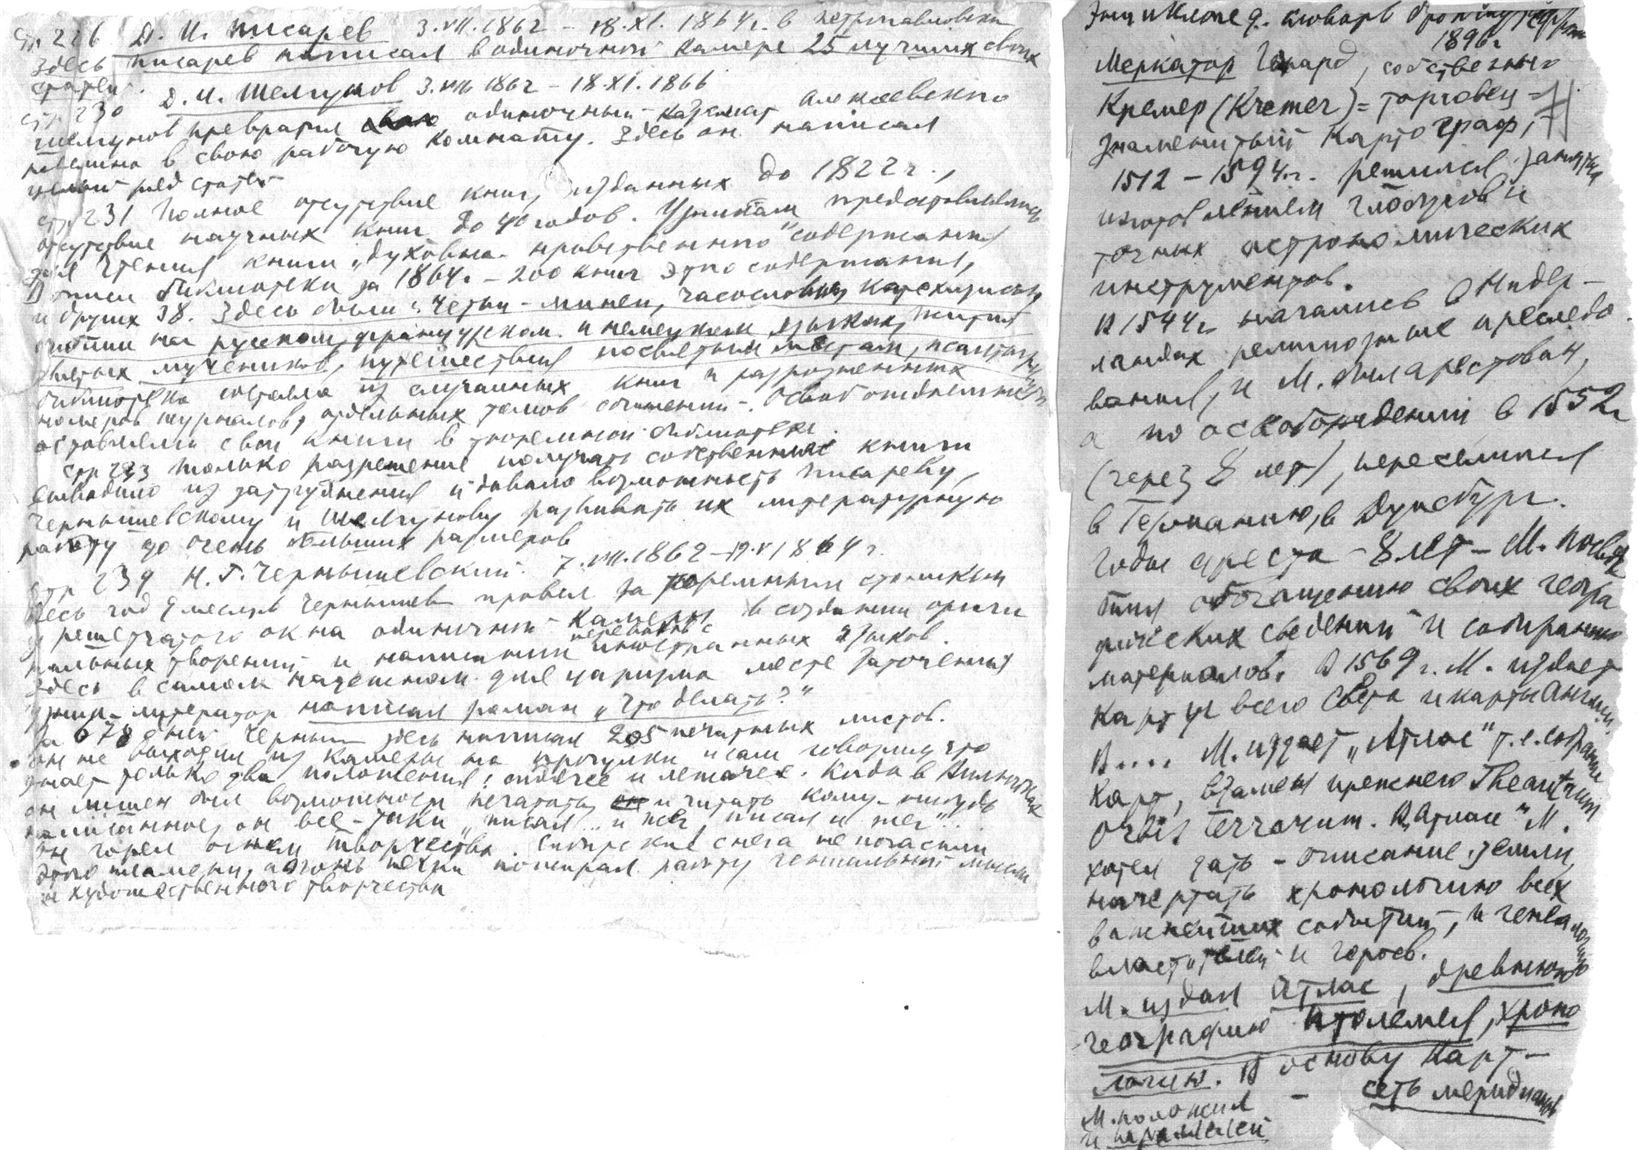 стр 226 Д. И. Писарев 3.VII.1862 – 18.XI.1864г. в петропавловской
Здесь писарев написал в одиночной камере 25 лучших своих
статей.
стр 230 Д. И. Шелгунов 3.VIII 1862 – 18.XI.1866
Шелгунов превратил одиночный каземат Алексеевского
равелина в свою рабочую комнату. Здесь он написал
целый ряд статей
стр 231 Полное отсутствие книг, изданных до 1822г.,
отсутствие научных книг до 40 годов. Узникам предоставлялись
для чтения книги „духовно-нравственного" содержания
В описи библиотеки за 1864г. – 200 книг этого содержания,
и других 38. Здесь были: Четьи-минеи, часословы, катехизисы,
библии на русском, французском и немецком языках, жития
святых мучеников, путешествия по святым местам, псалтыри
библиотека состояла из случайных книг и разрозненных
номеров журналов, отдельных томов сочинений. Освобожденные
оставляли свои книги в тюремной библиотеке.
стр 233 только разрешение получать собственные книги
выводило из затруднения и давало возможность Писареву,
Чернышевскому и Шелгунову развивать их литературную
работу до очень больших размеров
стр 239 Н. Г. Чернышевский. 7.VII.1862–19.V 1864г.
Весь год 9 месяцев Чернышев провел за тюремным столиком
у решетчатого окна одиночной камеры в создании ориги
нальных творений и написании переводов с иностранных языков.
Здесь в самом надежном для царизма месте заточения
узник-литератор написал роман „Что делать?"
За 678 дней Черныш здесь написал 205 печатных листов.
он не выходил из камеры на прогулки и сам говорил, что
знает только два положения: сидячее и лежачее. Когда в Вилюйске
он лишен был возможности печатать и читать кому-нибудь
написанное, он все-таки „писал и жег, писал и жег"..
Он горел огнем творчества. Сибирские снега не погасили
этого пламени, а огонь печки пожирал работу гениальной мысли
и художественного творчества
Энциклопед. словарь Брокгауз Ефрон
1896г
Меркатор Герард, собственно
Кремер (Kremer) = торговец =
знаменитый картограф,
1512 – 1594гг. решился заняться
изготовлением глобусов и
точных астрономических
инструментов.
В 1544г начались в Нидер-
ландах религиозные преследо-
вания, и М. был арестован,
а по освобождении в 1552г
(через 8 лет), переселился
в Германию, в Дуисбург.
Годы ареста – 8 лет – М. посвя
тил обогащению своих геогра
фических сведений и собиранию
материалов. В 1569г. М. издает
карту всего света и карты Англии.
В.... М. издает „Атлас" т.е. собрание
карт, взамен прежнего Theatrum
orbis terrarum. В „Атлас" М.
хотел дать – описание земли,
начертать хронологию всех
важнейших событий, и генеалогию
властителей и героев.
М. издал Атлас, древнюю
географию Птолемея, хроно
логию. В основу карт –
М. положил – сеть меридианов
и параллелей